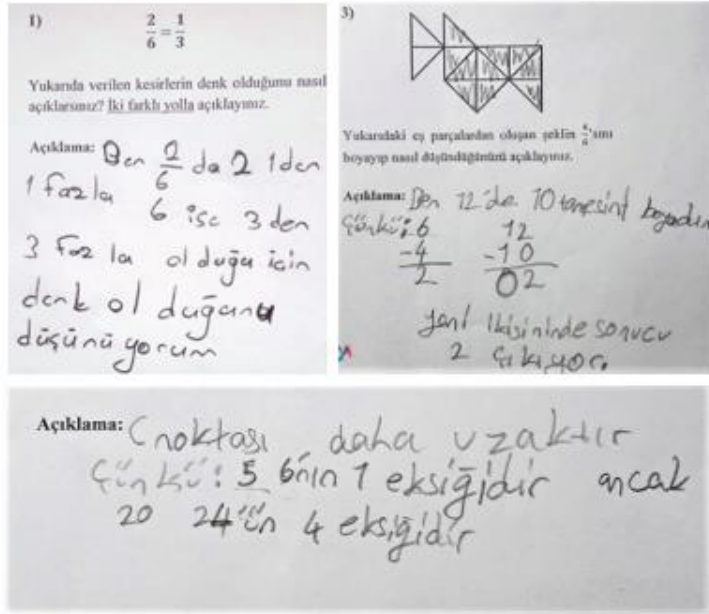 1)
2/6 = 1/3
Yukarıda verilen kesirlerin denk olduğunu nasıl
açıklarsınız? İki farklı yolla açıklayınız.
Açıklama: Ben 2/6 da 2 1den
1 fazla
6 ise 3 den
3 fazla olduğu için
denk olduğunu
düşünüyorum
3)
Yukarıdaki eş parçalardan oluşan şeklin 4/6'sını
boyayıp nasıl düşündüğünüzü açıklayınız.
Açıklama: Ben 12'de 10 tanesini boyadım
Çünkü: 6 12
-4 -10
2 02
yani ikisininde sonucu
2 çıkıyor.
Açıklama: C noktası daha uzaktır
Çünkü: 5 6'nın 1 eksiğidir ancak
20 24'ün 4 eksiğidir